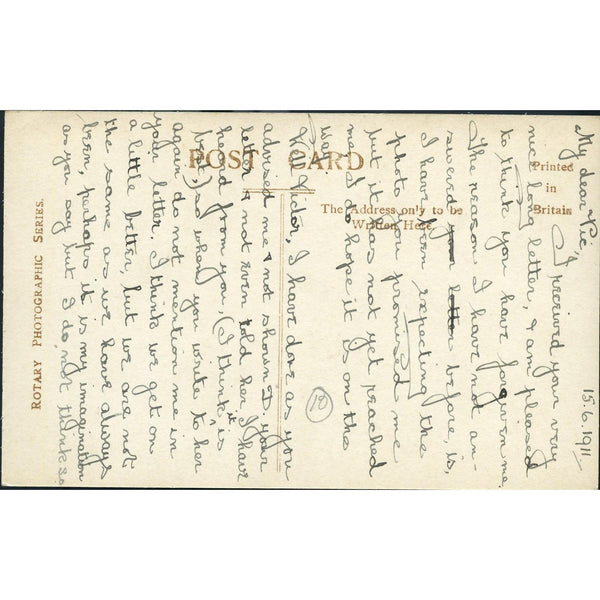 POST CARD
Printed
in
Britain
The Address only to be
Written Here.
ROTARY PHOTOGRAPHIC SERIES.
15.6.1911
My dear Vic,
I received your very
nice long letter, & am pleased
to think you have forgiven me.
The reason I have not an-
swered your letter before, is,
I have been expecting the
photo you promised me
but it has not yet reached
me, I do hope it is on the
way.
Well Victor, I have done as you
advised me & not shown your
letter & not even told her, I have
heard from you, (I think it is
best,) so when you write to her
again do not mention me in
your letter. I think we get on
a little better, but we are not
the same as we have always
been, perhaps it is my imagination
as you say but I do not think so.
(18)